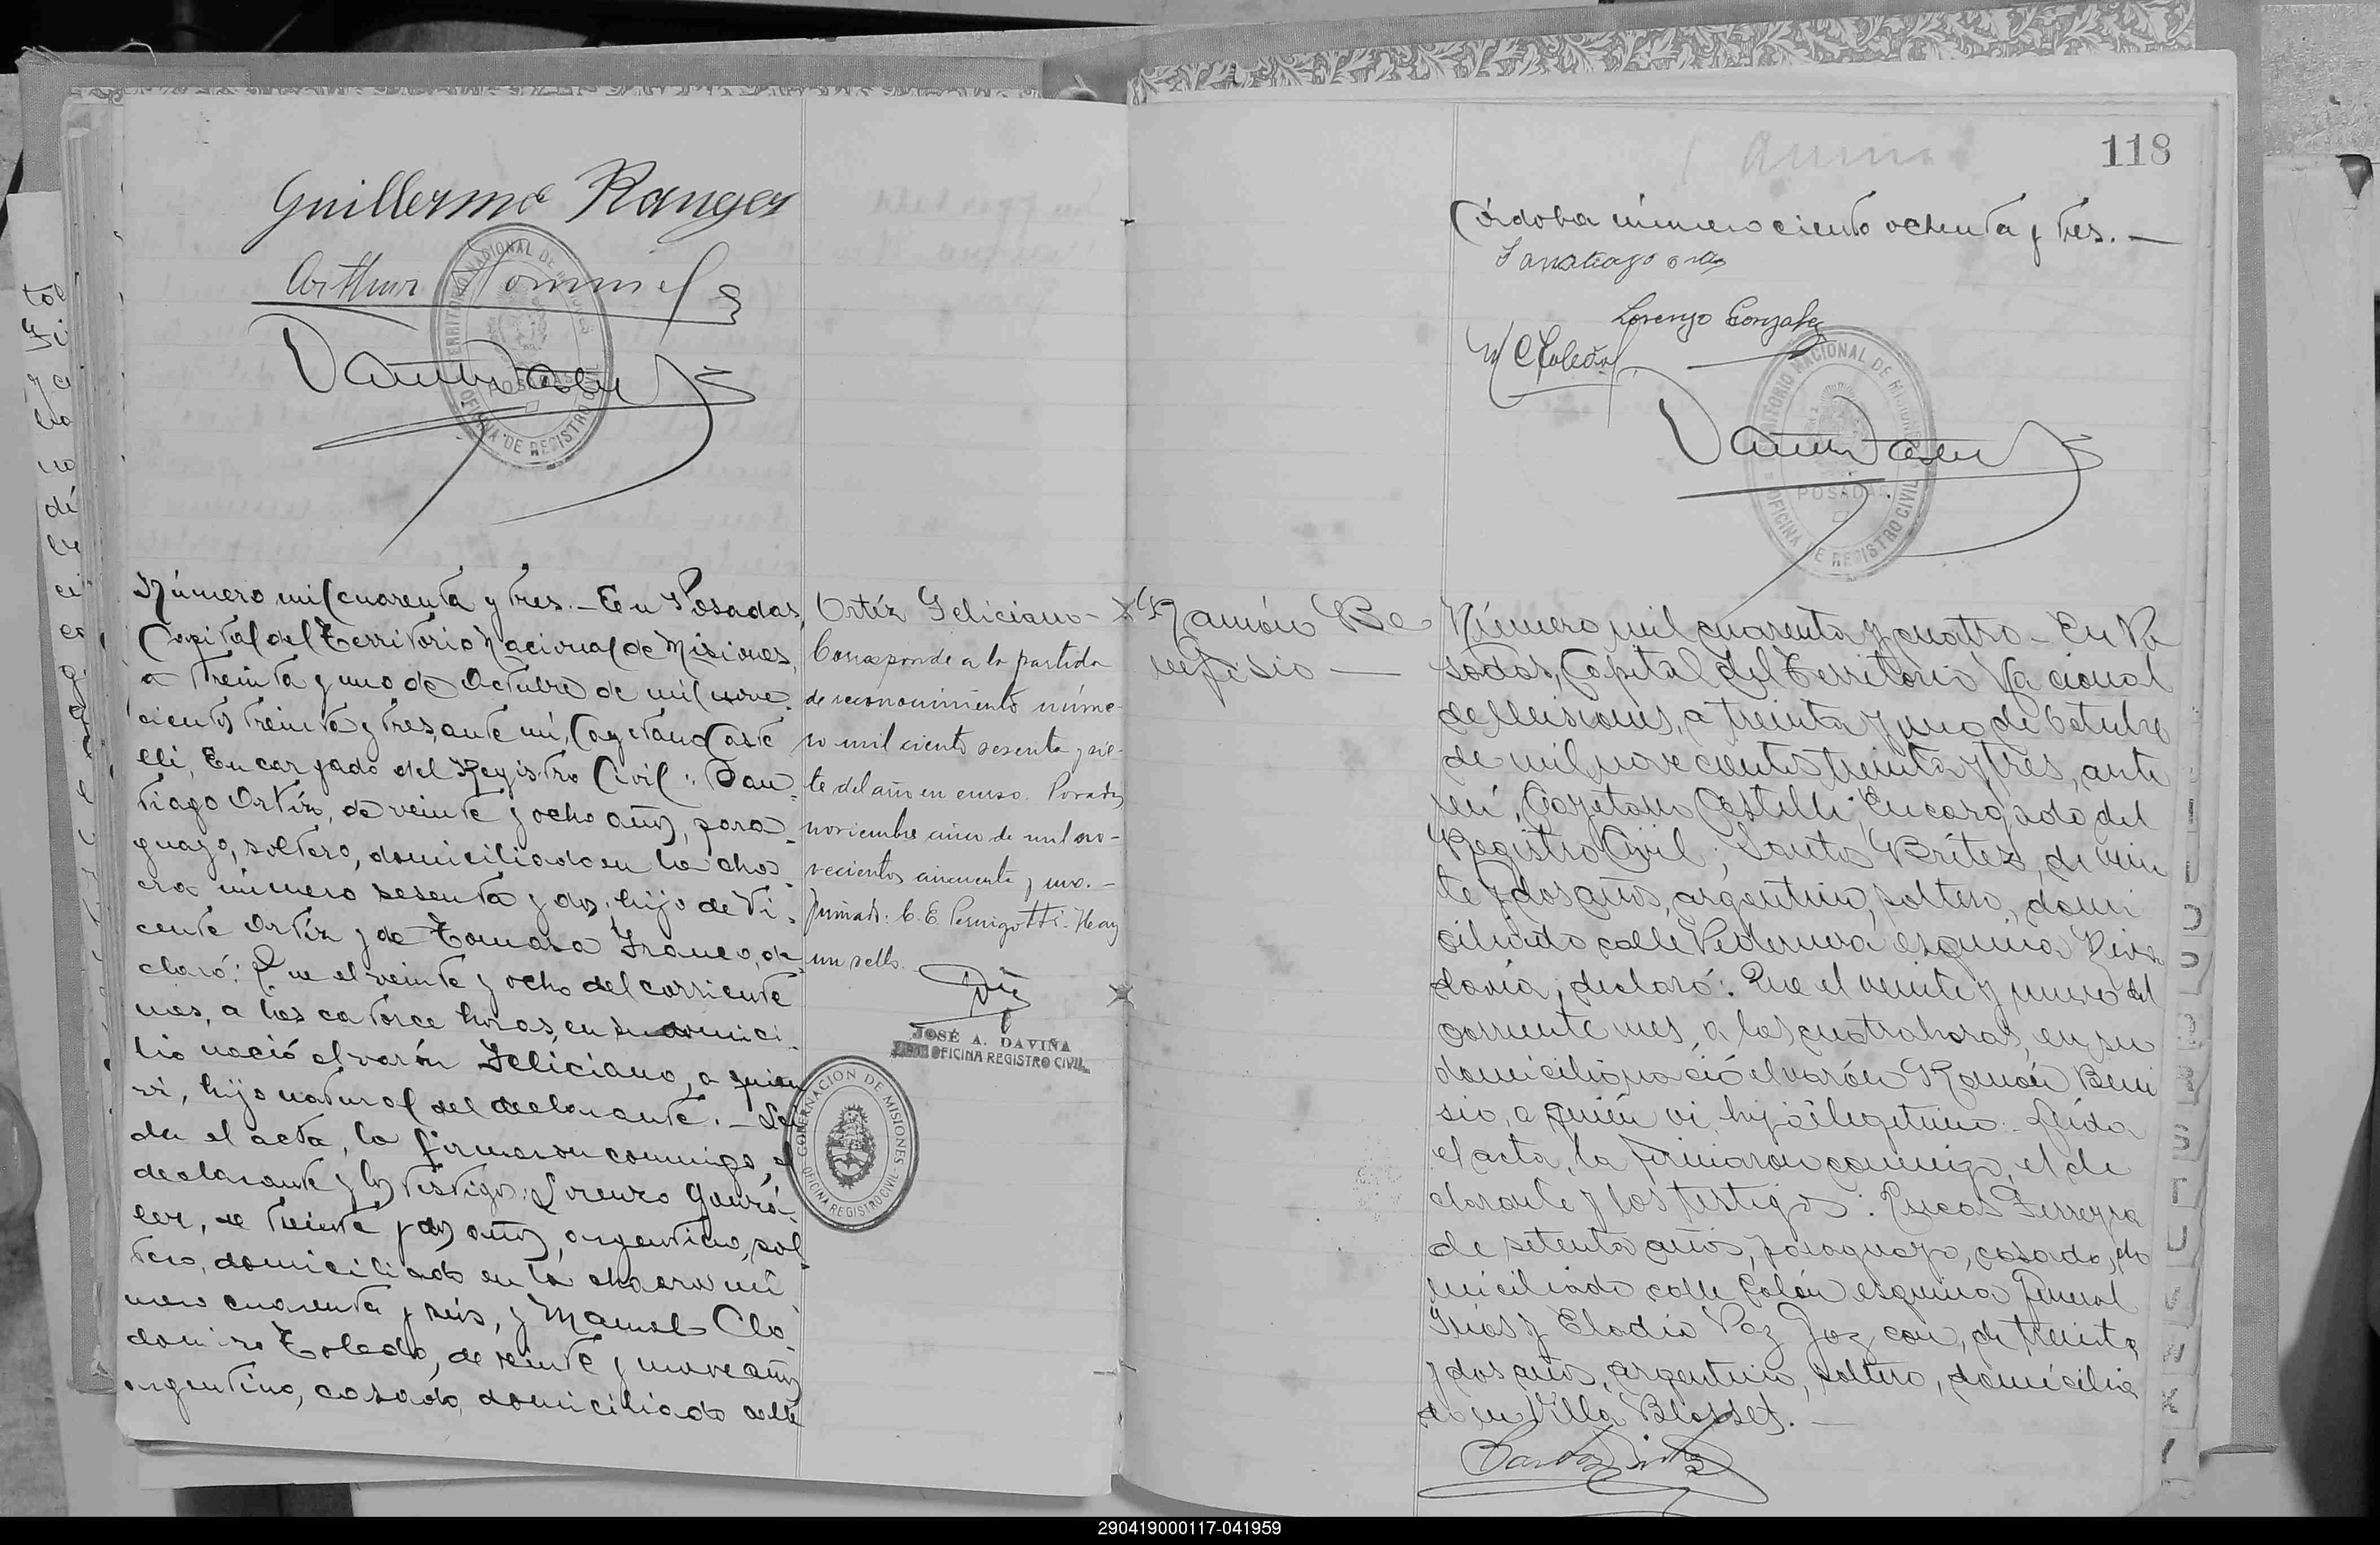 Guillermo Ranger
Arthur
TERRITORIO NACIONAL DE MISIONES
POSADAS
OFICINA DE REGISTRO CIVIL
Número mil cuarenta y tres.- En Posadas,
Capital del Territorio Nacional de Misiones,
a treinta y uno de Octubre de mil nove-
cientos treinta y tres, ante mí, Cayetano Caste
lli, Encargado del Registro Civil: San-
tiago Ortíz, de veinte y ocho años, para-
guayo, soltero, domiciliado en la cha-
cra número sesenta y dos, hijo de Vi-
cente Ortíz y de Tomasa Franco, de-
claró: Que el veinte y ocho del corriente
mes, a las catorce horas, en su domici-
lio nació el varón Feliciano, a quien
ví, hijo natural del declarante.- Leí
da el acta, la firmaron conmigo, el
declarante y los testigos: Lorenzo Gonzá-
lez, de treinta y dos años, argentino, sol-
tero, domiciliado en la chacra nú
mero cuarenta y seis, y Manuel Clo-
domiro Toledo, de veinte y nueve años
argentino, casado, domiciliado calle
Ortíz Feliciano-
Corresponde a la partida
de reconocimiento núme-
ro mil ciento sesenta y sie-
te del año en curso. Posadas
noviembre cinco de mil no-
vecientos cincuenta y uno.-
Firmado: C. E. Pernigotti. Hay
un sello.
JOSÉ A. DAVIÑA
OFICINA REGISTRO CIVIL
GOBERNACION DE MISIONES
OFICINA REGISTRO CIVIL
118
Córdoba número ciento ochenta y tres.-
Lorenzo Gonzalez
M C Toledo
TERRITORIO NACIONAL DE MISIONES
POSADAS
OFICINA DE REGISTRO CIVIL
Ramón Be
Número mil cuarenta y cuatro - En Po
sadas, Capital del Territorio Nacional
de Misiones, a treinta y uno de Octubre
de mil novecientos treinta y tres, ante
mí, Cayetano Castelli, Encargado del
Registro Civil; Santos Britez, de vein
te y dos años, argentino, soltero, domi
ciliado calle Pedernera esquina Riva
davia, declaró: Que el veinte y nueve del
corriente mes, a las cuatro horas, en su
domicilio nació el varón Ramón Beni
sio, a quién ví, hijo ilegitimo.- Leída
el acta, la firmaron conmigo, el de
clarante y los testigos: Lucas Ferreyra
de setenta años, paraguayo, casado, do
miciliado calle Colón esquina General
Frías y Eladio Paz, de treinta
y dos años, argentino, soltero, domicilia
do en Villa Blosset.-
290419000117-041959